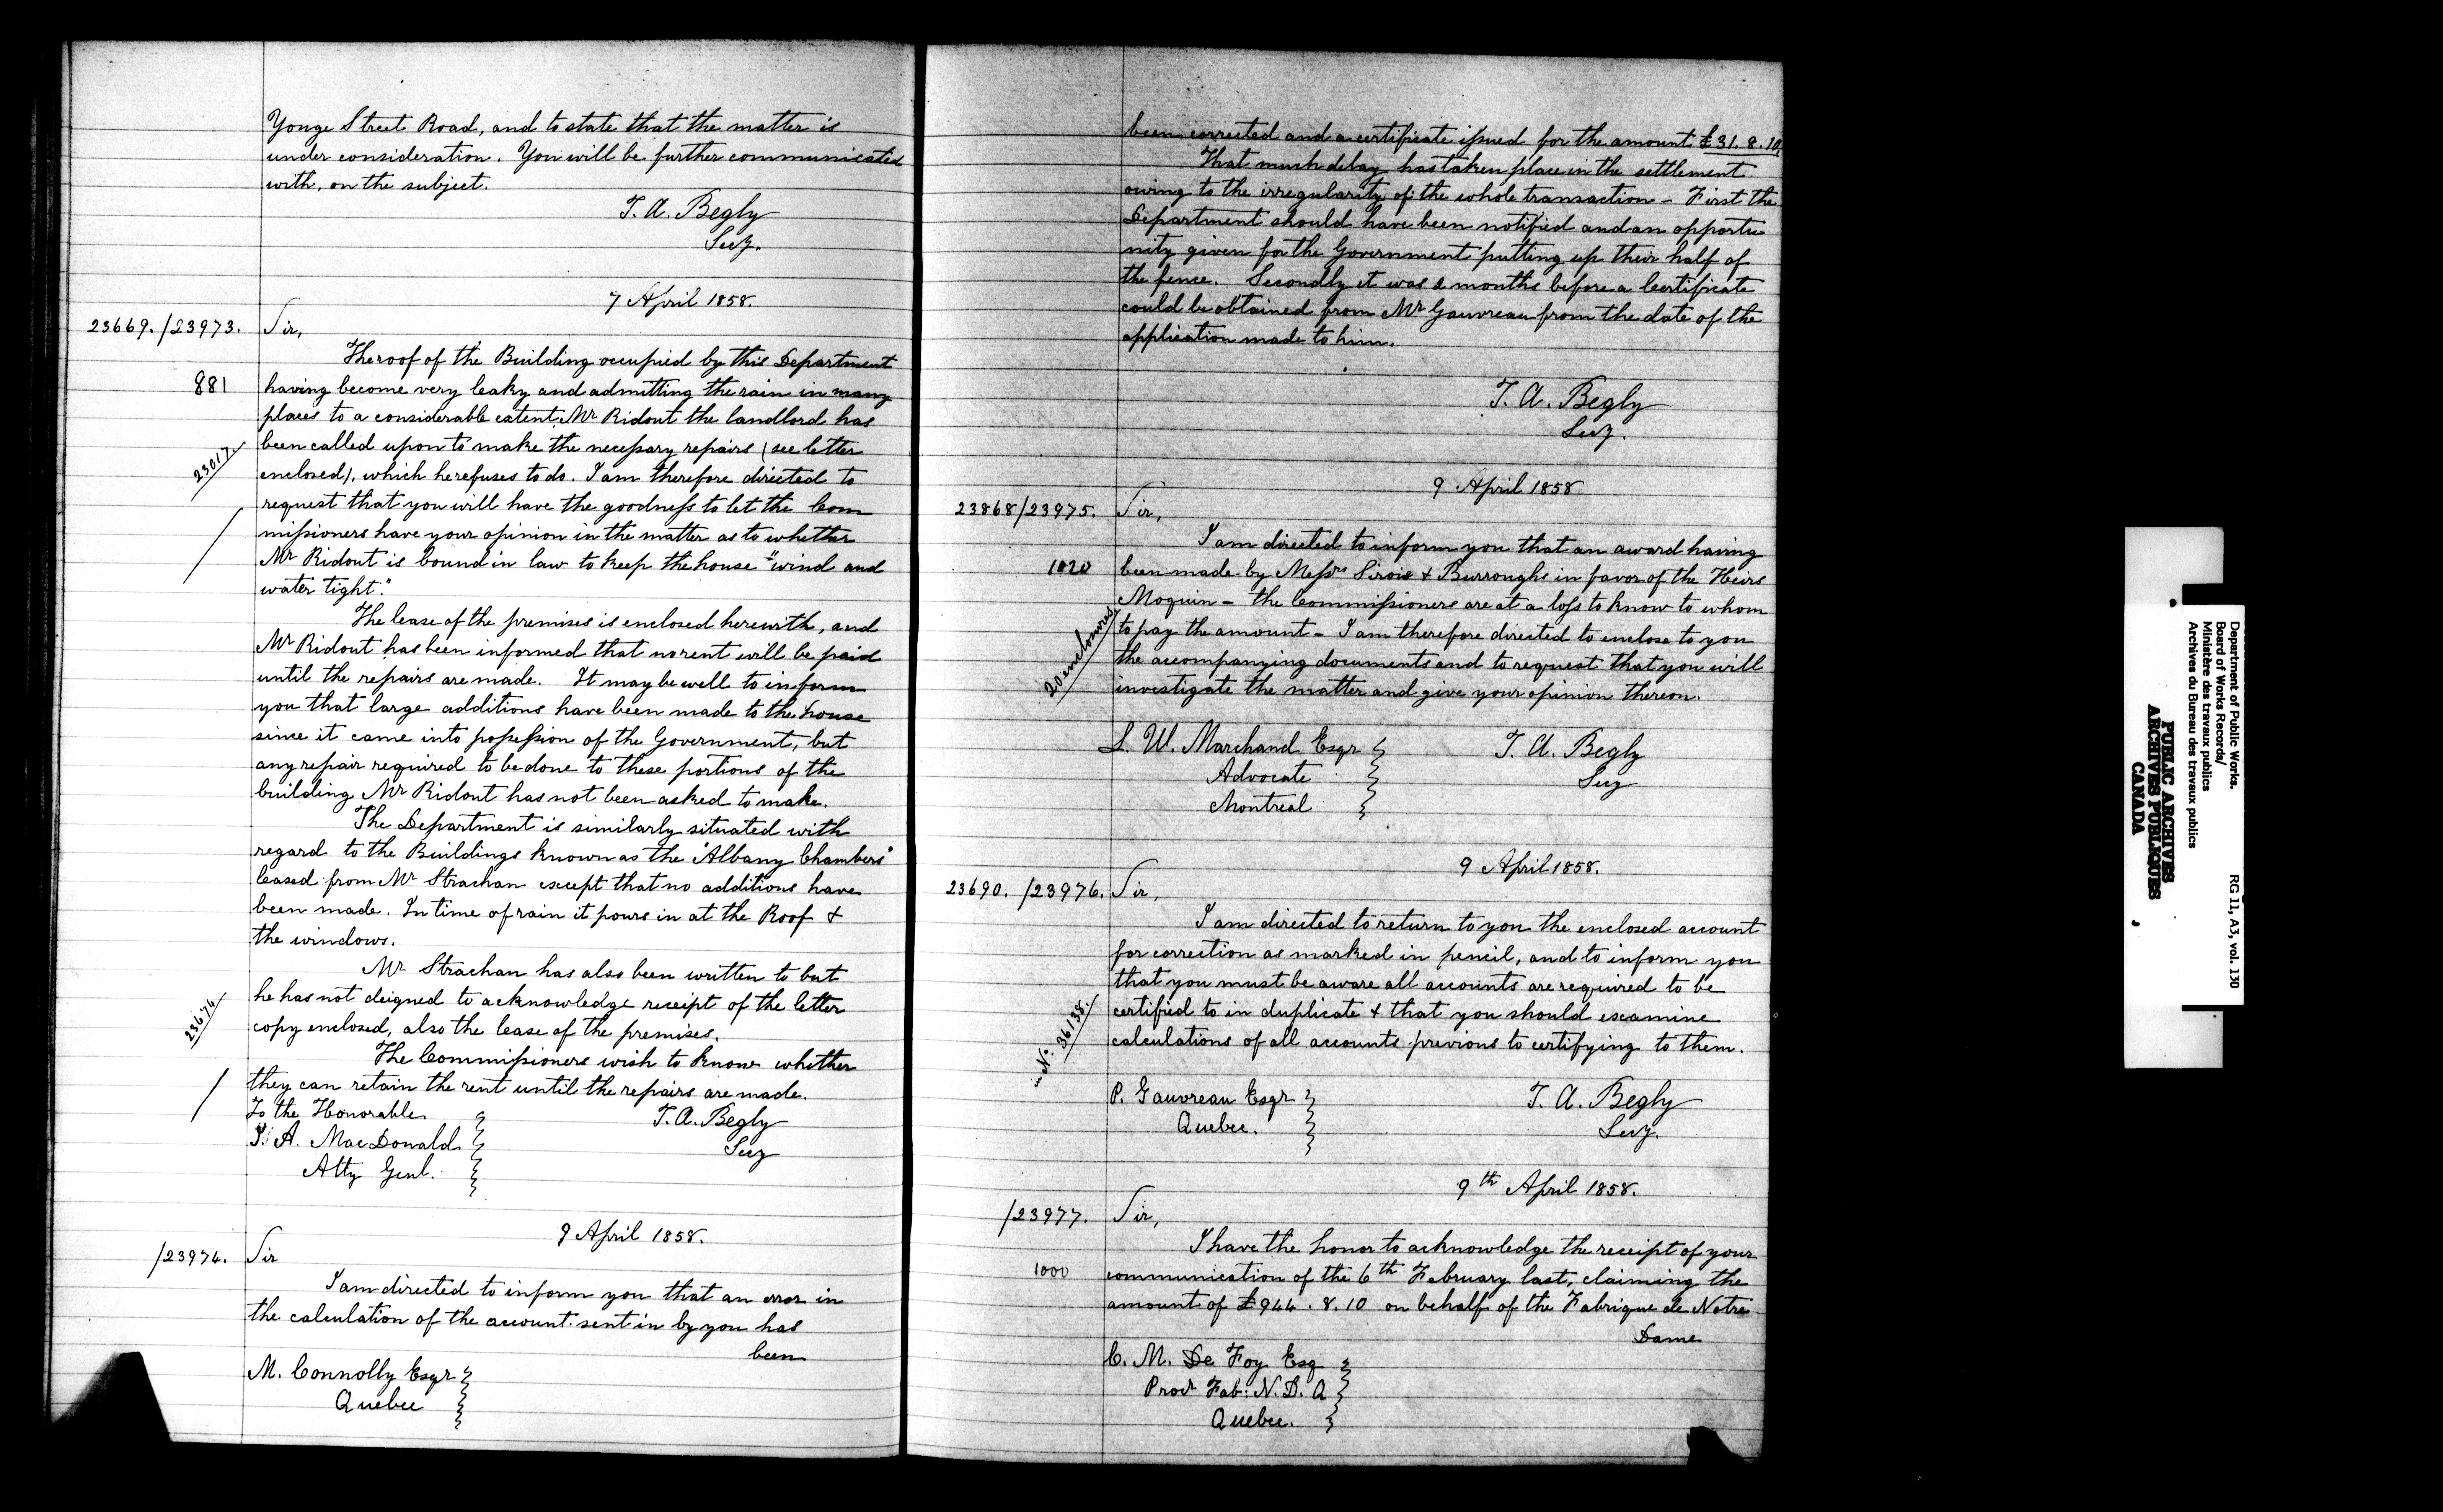 Yonge Street Road, and to state that the matter is
under consideration. You will be further communicated
with, on the subject.
T. A. Begly
Secy.
7 April 1858.
23669. /23973. Sir,
The roof of the Building occupied by this Department
881 having become very leaky and admitting the rain in many
places to a considerable extent, Mr Ridout the landlord has
been called upon to make the necessary repairs (see letter
23017.
enclosed), which he refuses to do. I am therefore directed to
request that you will have the goodness to let the Com
missioners have your opinion in the matter as to whether
Mr Ridout is bound in law to keep the house "wind and
water tight".
The lease of the premises is enclosed herewith, and
Mr Ridout has been informed that no rent will be paid
until the repairs are made. It may be well to inform
you that large additions have been made to the house
since it came into possession of the Government, but
any repair required to be done to these portions of the
building Mr Ridout has not been asked to make.
The Department is similarly situated with
regard to the Buildings known as the "Albany Chambers"
leased from Mr Strachan except that no additions have
been made. In time of rain it pours in at the Roof &
the windows.
Mr Strachan has also been written to but
he has not deigned to acknowledge receipt of the letter
23674
copy enclosed, also the lease of the premises.
The Commissioners wish to know whether
they can retain the rent until the repairs are made.
To the Honorable
J. A. MacDonald
Atty Genl.
T. A. Begly
Secy
9 April 1858.
/23974. Sir
I am directed to inform you that an error in
the calculation of the account sent in by you has
been
M. Connolly Esqr
Quebec
been corrected and a certificate issued for the amount £31. 8. 10.
That much delay has taken place in the settlement
owing to the irregularity of the whole transaction - First the
Department should have been notified and an opportu
nity given for the Government putting up their half of
the fence. Secondly it was months before a Certificate
could be obtained from Mr Gauvreau from the date of the
application made to him.
T. A. Begly
Secy.
9 April 1858
23868/23975. Sir,
I am directed to inform you that an award having
1020 been made by Messrs Sirois & Burroughs in favor of the Heirs
Moquin - the Commissioners are at a loss to know to whom
to pay the amount - I am therefore directed to enclose to you
20 enclosures
the accompanying documents and to request that you will
investigate the matter and give your opinion thereon.
L. W. Marchand Esqr
Advocate
Montreal
T. A. Begly
Secy
9 April 1858.
23690. /23976. Sir,
I am directed to return to you the enclosed account
for correction as marked in pencil, and to inform you
that you must be aware all accounts are required to be
certified to in duplicate & that you should examine
No. 36138.
calculations of all accounts previous to certifying to them.
P. Gauvreau Esqr
Quebec.
T. A. Begly
Secy.
9th April 1858.
/23977. Sir,
I have the honor to acknowledge the receipt of your
1000 communication of the 6th February last, claiming the
amount of £944. 8. 10 on behalf of the Fabrique de Notre
Dame
C. M. De Foy Esq
Procr Fab: N. D. Q
Quebec.
Department of Public Works. RG 11, A3, vol. 130
Board of Works Records/
Ministère des travaux publics
Archives du Bureau des travaux publics
PUBLIC ARCHIVES
ARCHIVES PUBLIQUES
CANADA